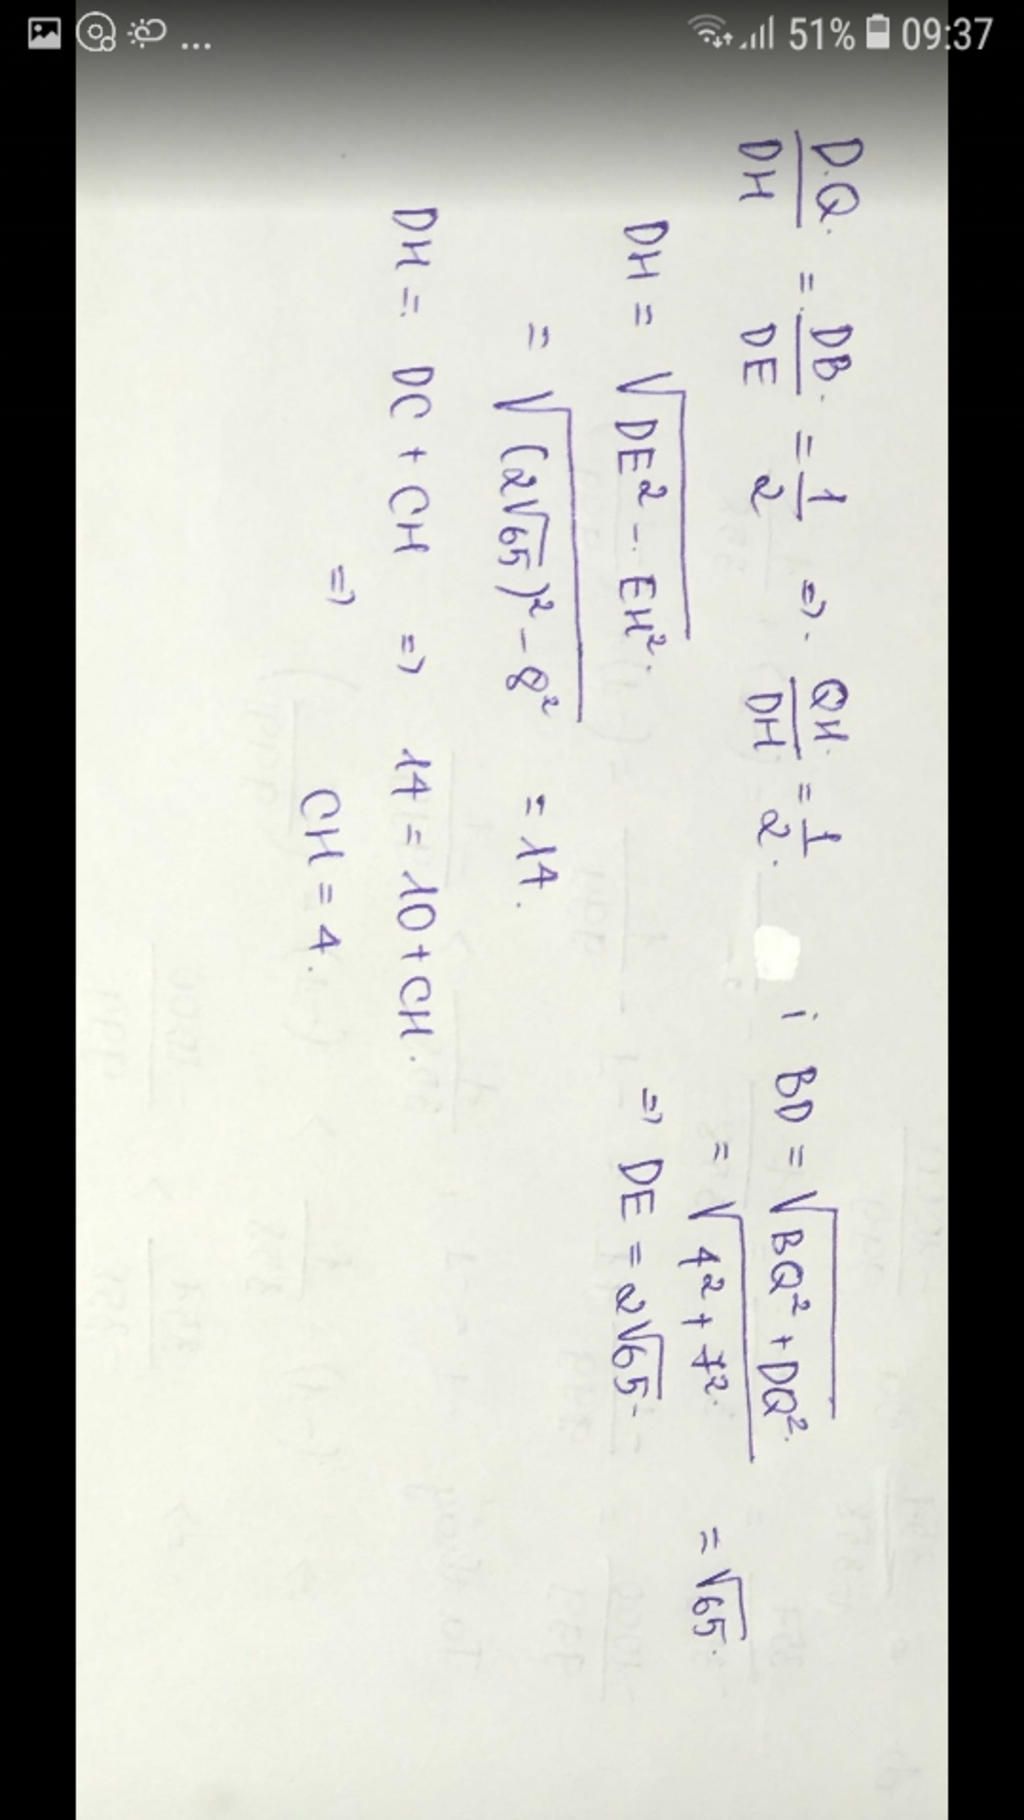 ... 51% 09:37
DQ/DH = DB/DE = 1/2 => QH/DH = 1/2. ; BD = √(BQ² + DQ²)
= √(4² + 7²) = √65.
DH = √(DE² - EH²) => DE = 2√65
= √((2√65)² - 8²) = 14.
DH = DC + CH => 14 = 10 + CH.
=> CH = 4.